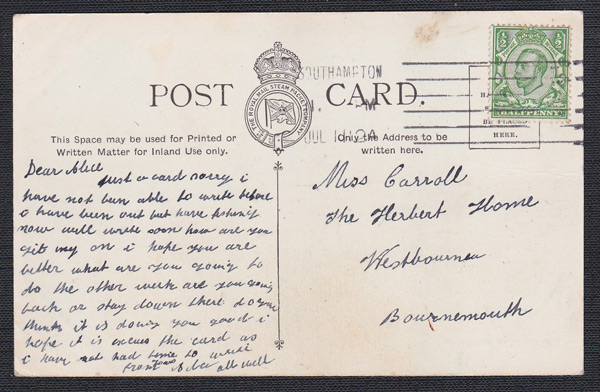 SOUTHAMPTON
PM
JUL
POST CARD.
THE ROYAL MAIL STEAM PACKET COMPANY
HALFPENNY
BE PLACED
HERE.
This Space may be used for Printed or
Written Matter for Inland Use only.
Only the Address to be
written here.
Dear Alice
just a card sorry i
have not been able to write before
i have been out but have
now will write soon how are you
on i hope you are
better what are you going to
do the other week are you going
back or stay down there do you
think it is doing you good i
hope it is excuse the card as
i have not had time to write
from all well
Miss Carroll
The Herbert Home
Westbourne
Bournemouth